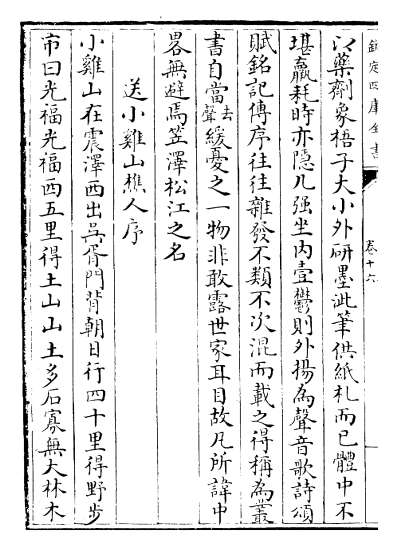 欽定四庫全書
卷十六
以藥劑象梧子大小外研墨泚筆供紙札而已體中不
堪羸耗時亦隐几强坐内壹鬱則外揚為聲音歌詩頌
賦銘記傳序往往雜發不類不次混而載之得稱為叢
書自當去聲緩憂之一物非敢露世家耳目故凡所諱中
畧無避焉笠澤松江之名
送小雞山樵人序
小雞山在震澤西出呉胥門背朝日行四十里得野步
市曰光福光福西五里得土山山土多石寡無大林木